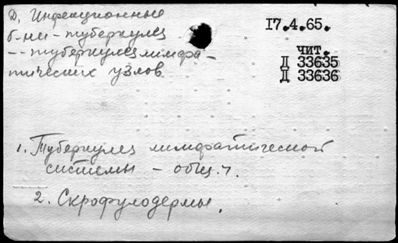 Д. Инфекционные
б-ни - туберкулез
-- туберкулез лимфа-
тических узлов.
17.4.65.
чит.
Д 33635
Д 33636
1. Туберкулез лимфатической
системы - общ. ч.
2. Скрофулодермы.